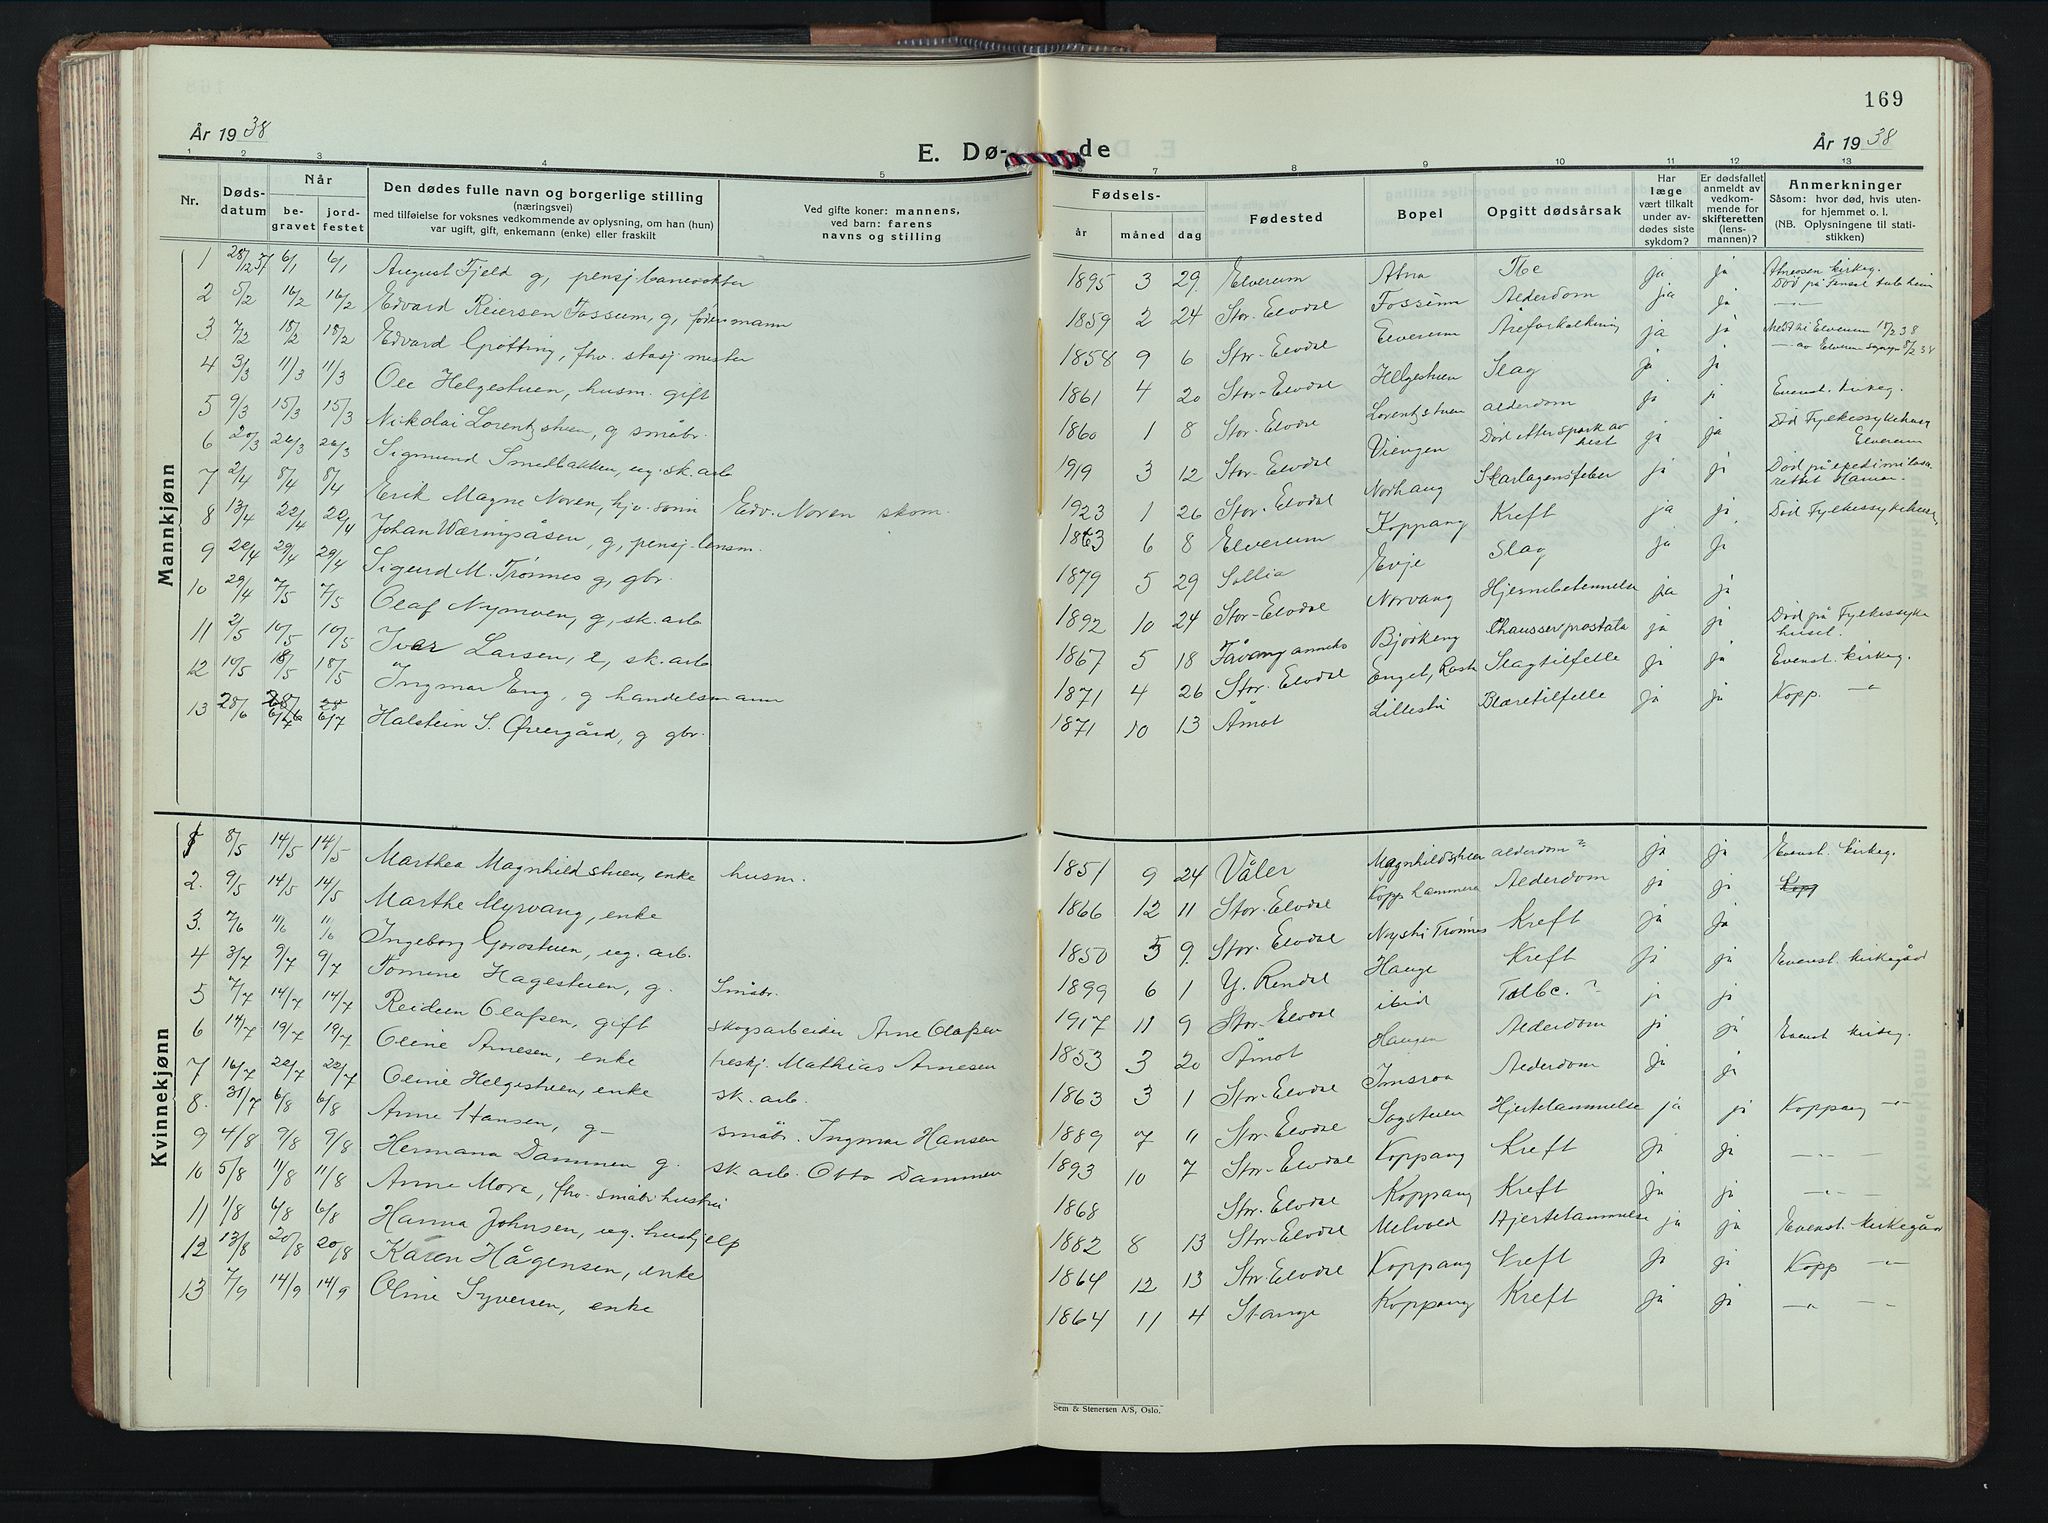 169
År 1938
E. Dø-
de
År 1938
1 2 3 4 5 6 7 8 9 10 11 12 13
Nr.
Døds-
datum
Når
be-
gravet
jord-
festet
Den dødes fulle navn og borgerlige stilling
(næringsvei)
med tilføielse for voksnes vedkommende av oplysning, om han (hun)
var ugift, gift, enkemann (enke) eller fraskilt
Ved gifte koner: mannens,
ved barn: farens
navns og stilling
Fødsels-
år
måned
dag
Fødested
Bopel
Opgitt dødsårsak
Har
læge
vært tilkalt
under av-
dødes siste
sykdom?
Er dødsfallet
anmeldt av
vedkom-
mende for
skifteretten
(lens-
mannen)?
Anmerkninger
Såsom: hvor død, hvis uten-
for hjemmet o. l.
(NB. Oplysningene til stati-
stikken)
Mannkjønn
1 28/12 37 6/1 6/1 August Fjeld g, pensj banevokter 1895 3 29 Elverum Atna Tbc ja ja Atneosen kirkeg.
2 5/2 16/2 16/2 Edvard Reiersen Fossum, g, føder mann 1859 2 24 Stor-Elvdal Fossum Alderdom ja ja
3. 7/2 18/2 18/2 Edvard Grøtting, fhv. stasj mester 1858 9 6 Stor-Elvdal Elverum Åreforkalkning ja ja
4 3/3 11/3 11/3 Ole Helgestuen, husm. gift 1861 4 20 Stor-Elvdal Helgestuen Slag ja ja
5 9/3 15/3 15/3 Nikolai Lorentzstuen, g småbr. 1860 1 8 Stor-Elvdal Lorentzstuen alderdom ja ja Evenst. kirkeg.
6 20/3 26/3 26/3 Sigmund Smedbakken, ug. sk. arb 1919 3 12 Stor-Elvdal Viengen Død etter spark av hest ja ja Død Fylkessykehuset Elverum
7 2/4 8/4 8/4 Erik Magne Noren, hjv. sønn Edv. Noren skom. 1923 1 26 Stor-Elvdal Norhang Skarlagensfeber ja ja Død på epedimilasarettet Hamar.
8 13/4 22/4 20/4 Johan Wæringsåsen, g, pensj. lensm. 1863 6 8 Elverum Koppang Kreft ja ja Død Fylkessykehuset
9 20/4 29/4 29/4 Sigurd M. Trønnes g, gbr. 1879 5 29 Sollia Evje Slag ja ja
10 29/4 7/5 7/5 Olaf Nymoen, g, sk. arb 1892 10 24 Stor-Elvdal Norvang Hjernebetennelse ja ja
11 2/5 10/5 10/5 Ivar Larsen, e, sk. arb 1867 5 18 Fåvang anneks Bjørkeng prostata ja ja Død på Fylkessykehuset.
12 10/5 18/5 18/5 Ingmar Eng, g handelsmann 1871 4 26 Stor-Elvdal Enget, Rasta Slagtilfelle ja ja Evenst. kirkeg.
13 28/6 6/7 6/7 Halstein S. Øvergård, g gbr. 1871 10 13 Åmot Lillestu Blæretilfelle ja ja Kopp. —"—
Kvinnekjønn
1 8/5 14/5 14/5 Marthea Magnhildstuen, enke husm. 1851 9 24 Våler Magnhildstuen alderdom? ja ja Evenst. kirkeg.
2. 9/5 14/5 14/5 Marthe Myrvang, enke 1866 12 11 Stor-Elvdal Alderdom ja ja Kopp
3. 7/6 11/6 11/6 Ingeborg Gorostuen, ug. arb. 1850 5 9. Stor-Elvdal Nystu Trønnes Kreft ja ja
4 3/7 9/7 9/7 Tomine Hagestuen, g. Småbr. 1899 6 1 Y. Rendal Hauge Kreft ja ja Evenst. kirkegård
5 7/7 14/7 14/7 Reidun Olafsen, gift skogsarbeider Arne Olafsen 1917 11 9 Stor-Elvdal ibid Tbc. ? ja ja
6 14/7 19/7 19/7 Oline Arnesen, enke Mathias Arnesen 1853 3 20 Åmot Haugen Alderdom ja ja Evenst kirkeg.
7 16/7 22/7 22/7 Oline Helgestuen, enke sk. arb. 1863 3 1 Stor-Elvdal Imsroa Alderdom ja ja
8. 31/7 6/8 6/8 Anne Hansen, g— småbr. Ingmar Hansen 1889 7 11 Stor-Elvdal Sagstuen Hjertelammelse ja ja Koppang —"—
9 4/8 9/8 9/8 Hermana Dammen g. sk. arb. Otto Dammen 1893 10 7 Stor-Elvdal Koppang Kreft ja ja —"— —"—
10 5/8 11/8 11/8 Anne Mora, fhv. småbr hustru 1868 Stor-Elvdal Koppang Kreft ja ja —"— —"—
11 1/8 6/8 6/8 Hanna Johnsen, ug. hushjelp 1882 8 13 Stor-Elvdal Melvold Hjertelammelse ja ja Evenst. kirkegård
12 13/8 20/8 20/8 Karen Hågensen, enke 1864 12 13 Stor-Elvdal Koppang Kreft ja ja Kopp —"—
13 7/9 14/9 14/9 Oline Syversen, enke 1864 11 4 Stange Koppang Kreft ja ja —"— —"—
Sem & Stenersen A/S, Oslo.